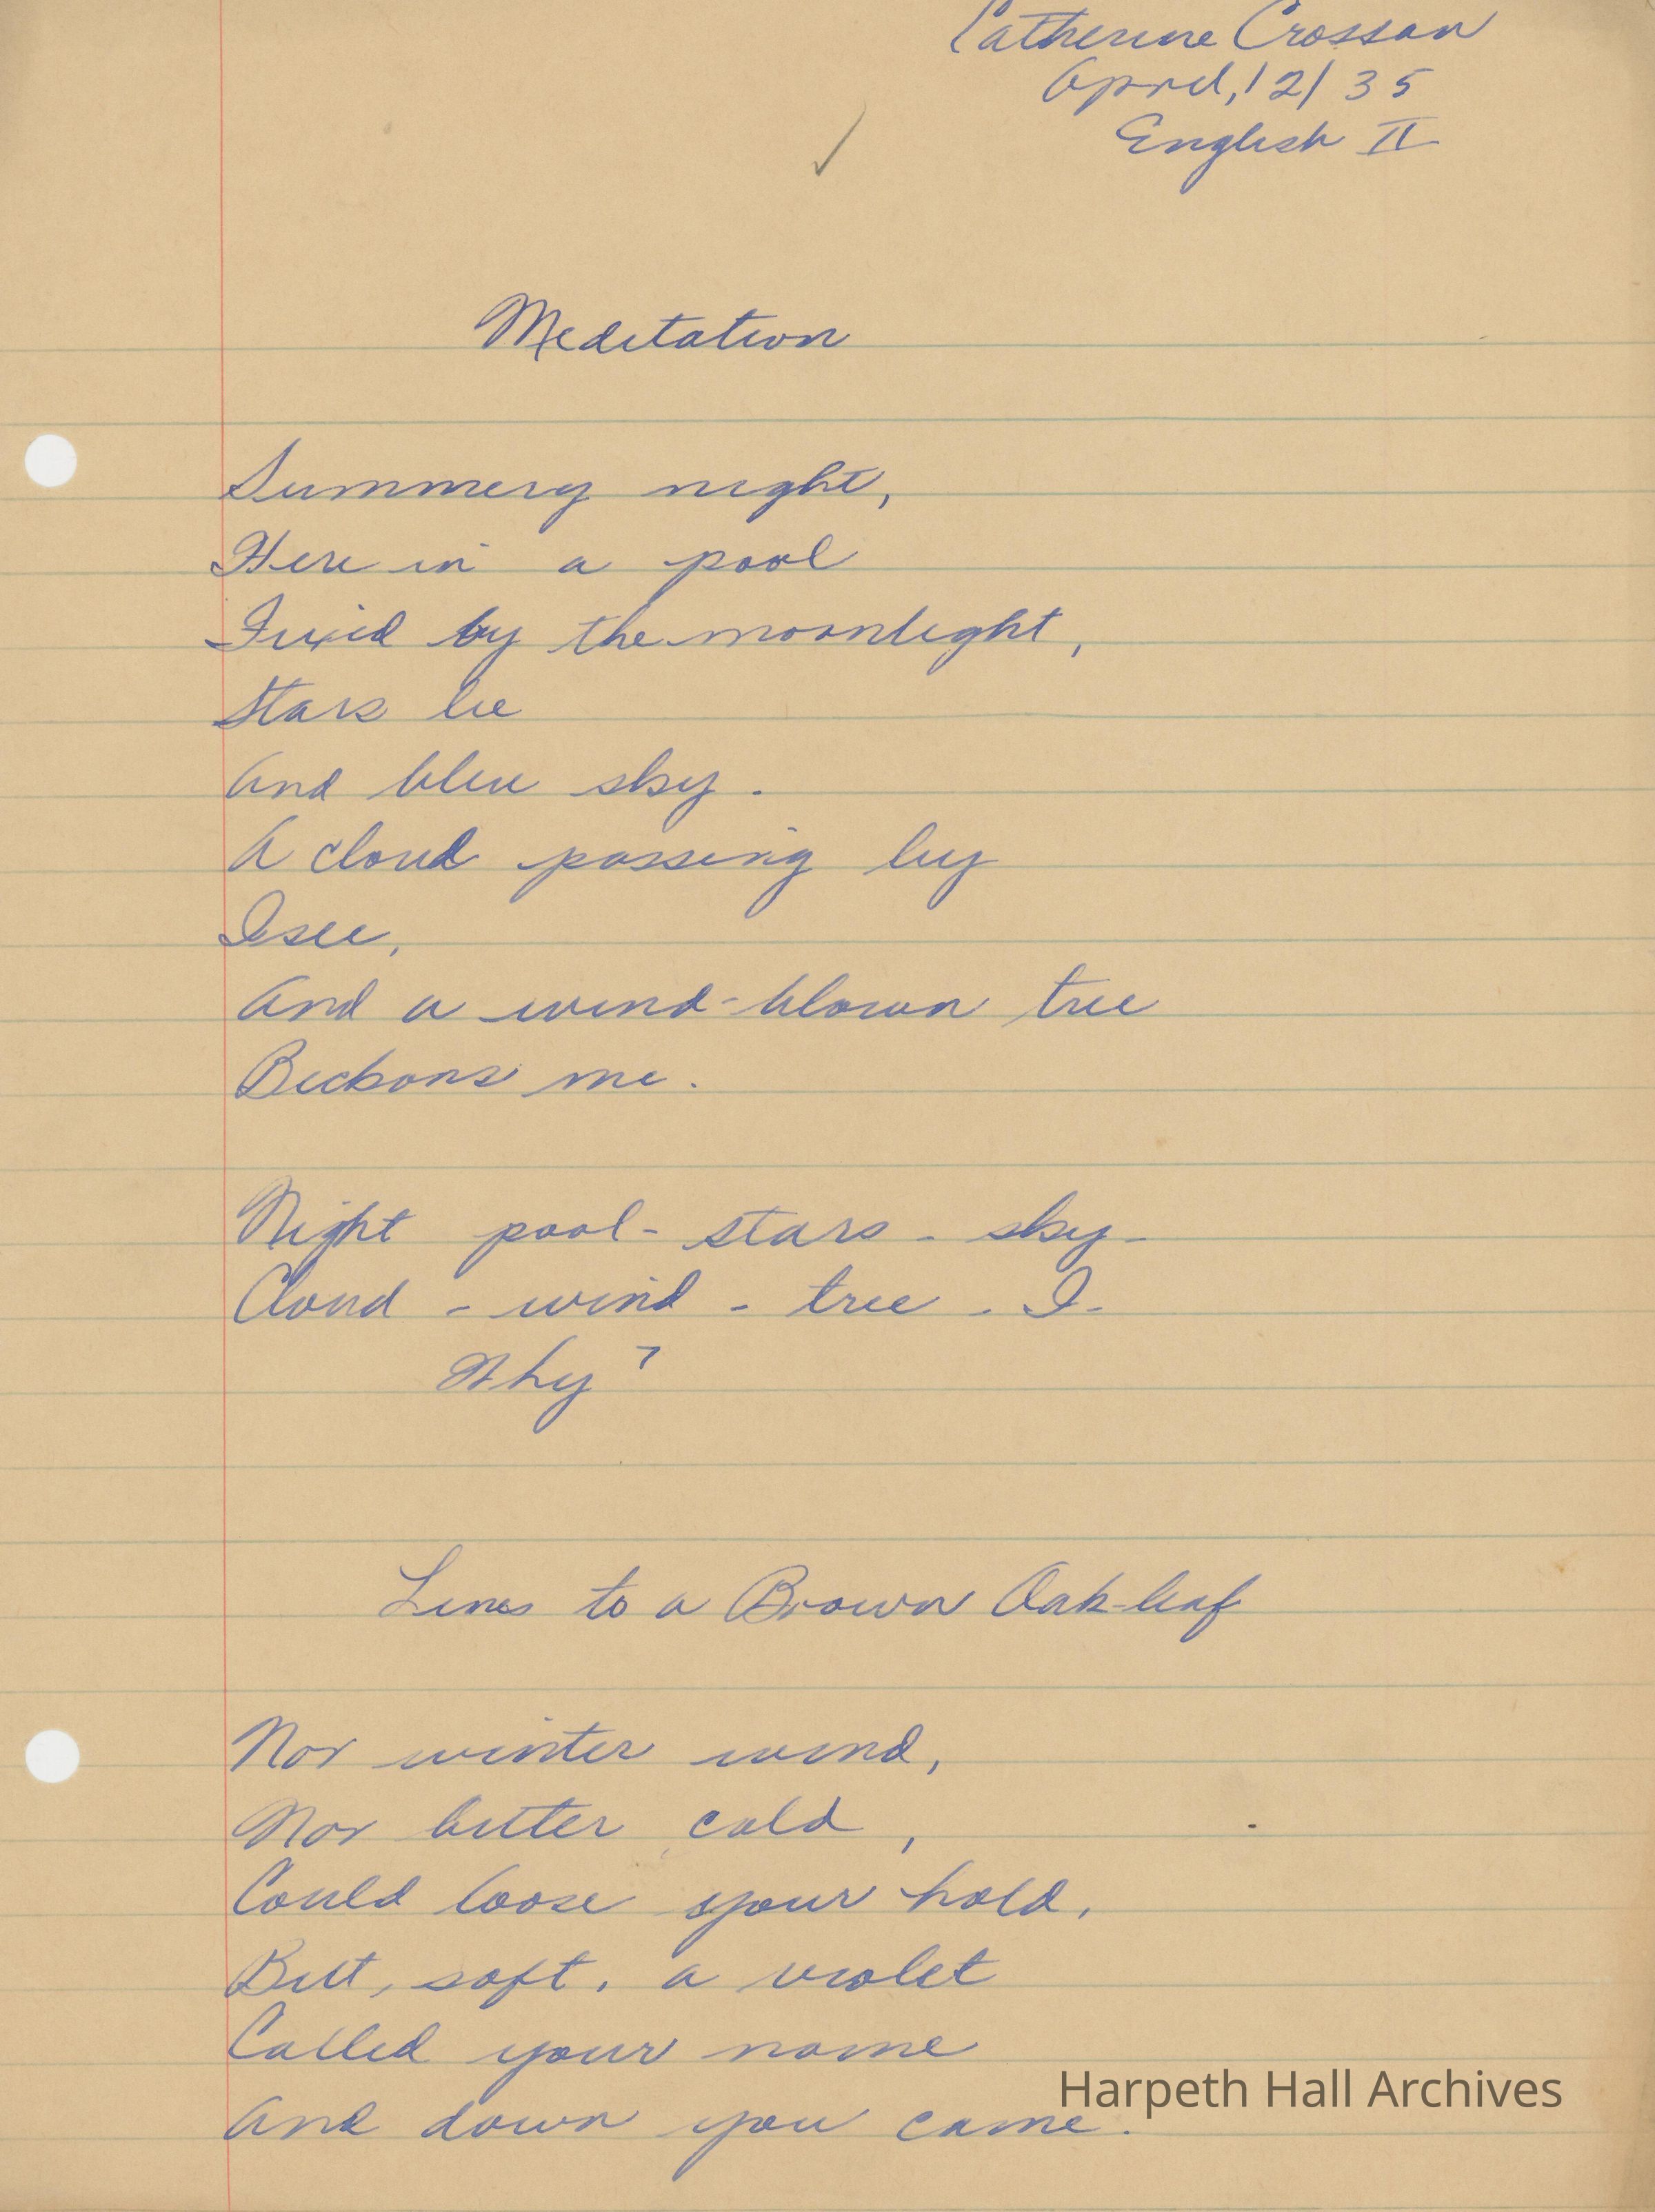 Catherine Crossan
April, 12/35
English II
Meditation
Summery night,
Here in a pool
Fixed by the moonlight,
Stars lie
And blue sky.
A cloud passing by
I see,
And a wind-blown tree
Beckons me.
Night pool- stars - sky-
Cloud - wind - tree - I-
Why?
Lines to a Brown Oak-leaf
Nor winter wind,
Nor bitter cold,
Could loose your hold,
But, soft, a violet
Called your name
And down you came.
Harpeth Hall Archives